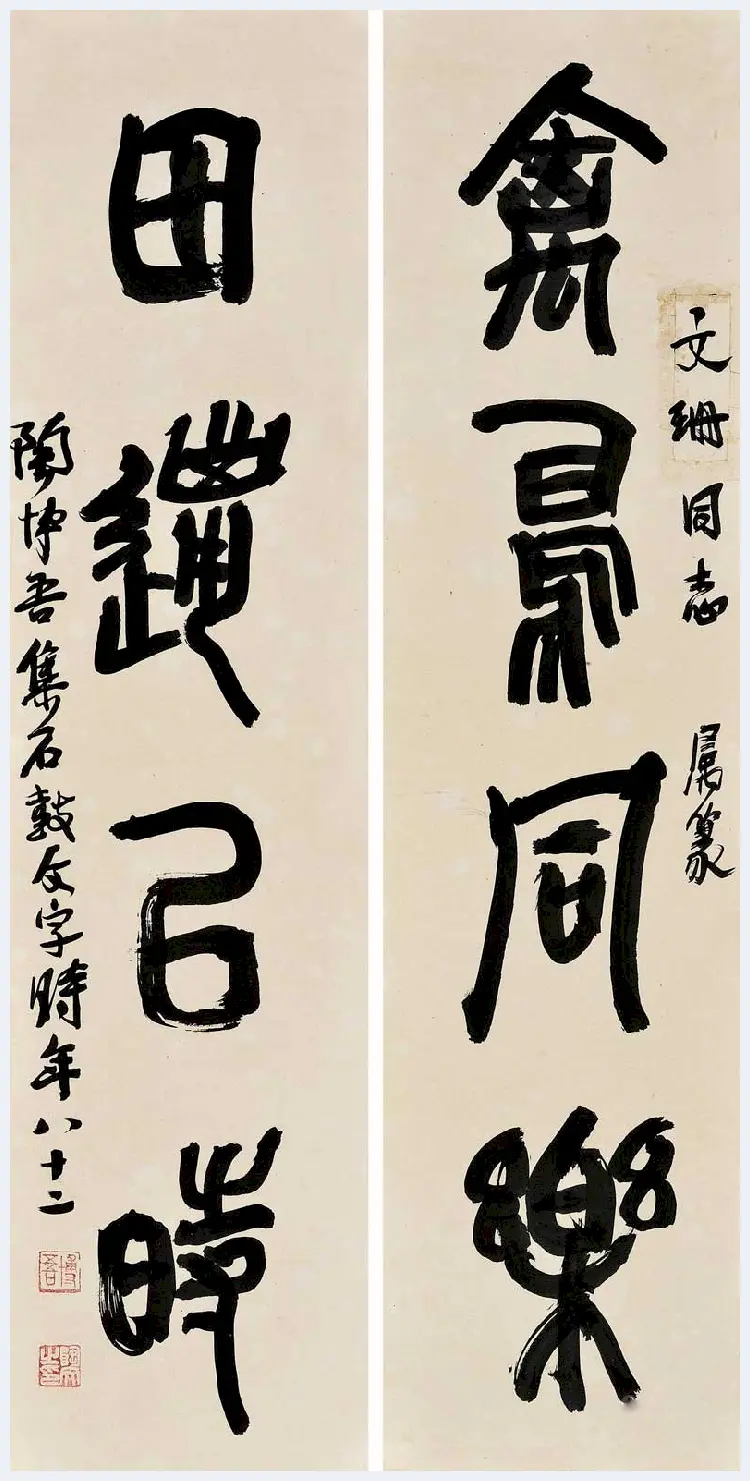 文珊同志 属篆
禽同樂
田邋以時
陶博吾集石鼓文字時年八十二
博吾